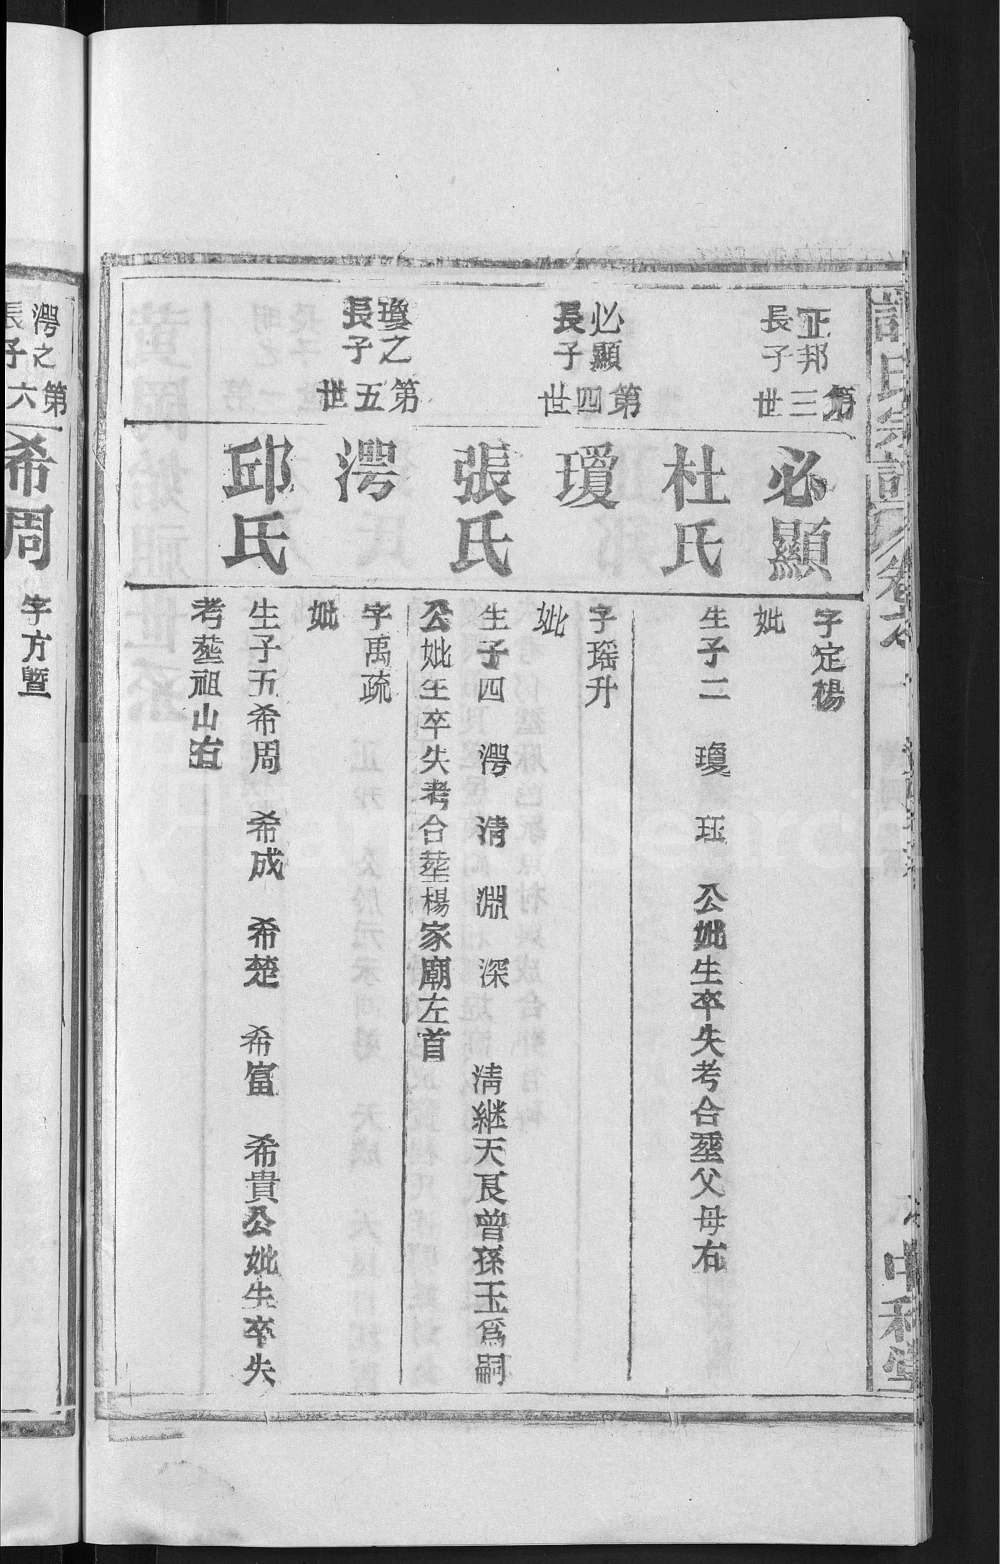 宗譜
正邦
長子
第三世
必顯
字定楊
杜氏
妣
生子二 瓊 珏 公妣生卒失考合塟父母右
必顯
長子
第四世
瓊
字瑶升
張氏
妣
生子四 澚 清 淵 深 清継天長曾孫玉爲嗣
公妣生卒失考合塟楊家廟左首
瓊之
長子
第五世
澚
字萬疏
邱氏
妣
生子五希周 希成 希楚 希富 希貴公妣生卒失
考塟祖山右
澚之
長子
第六
希周
字方暨